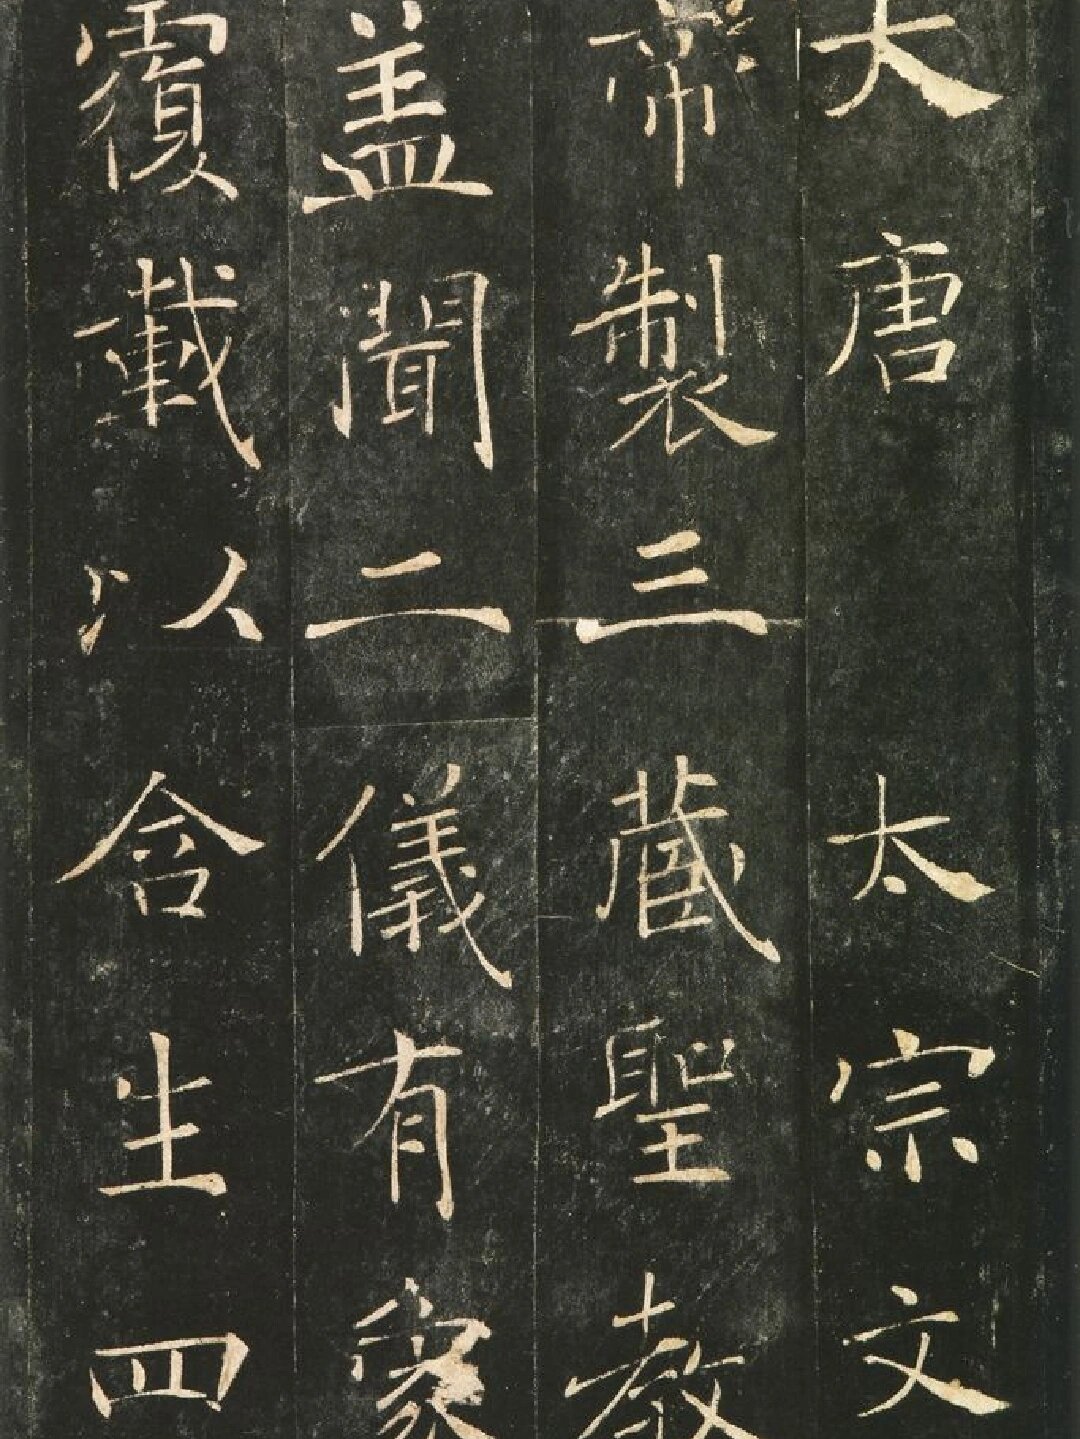 大唐太宗文
帝製三藏聖教
盖聞二儀有象
覆載以含生四